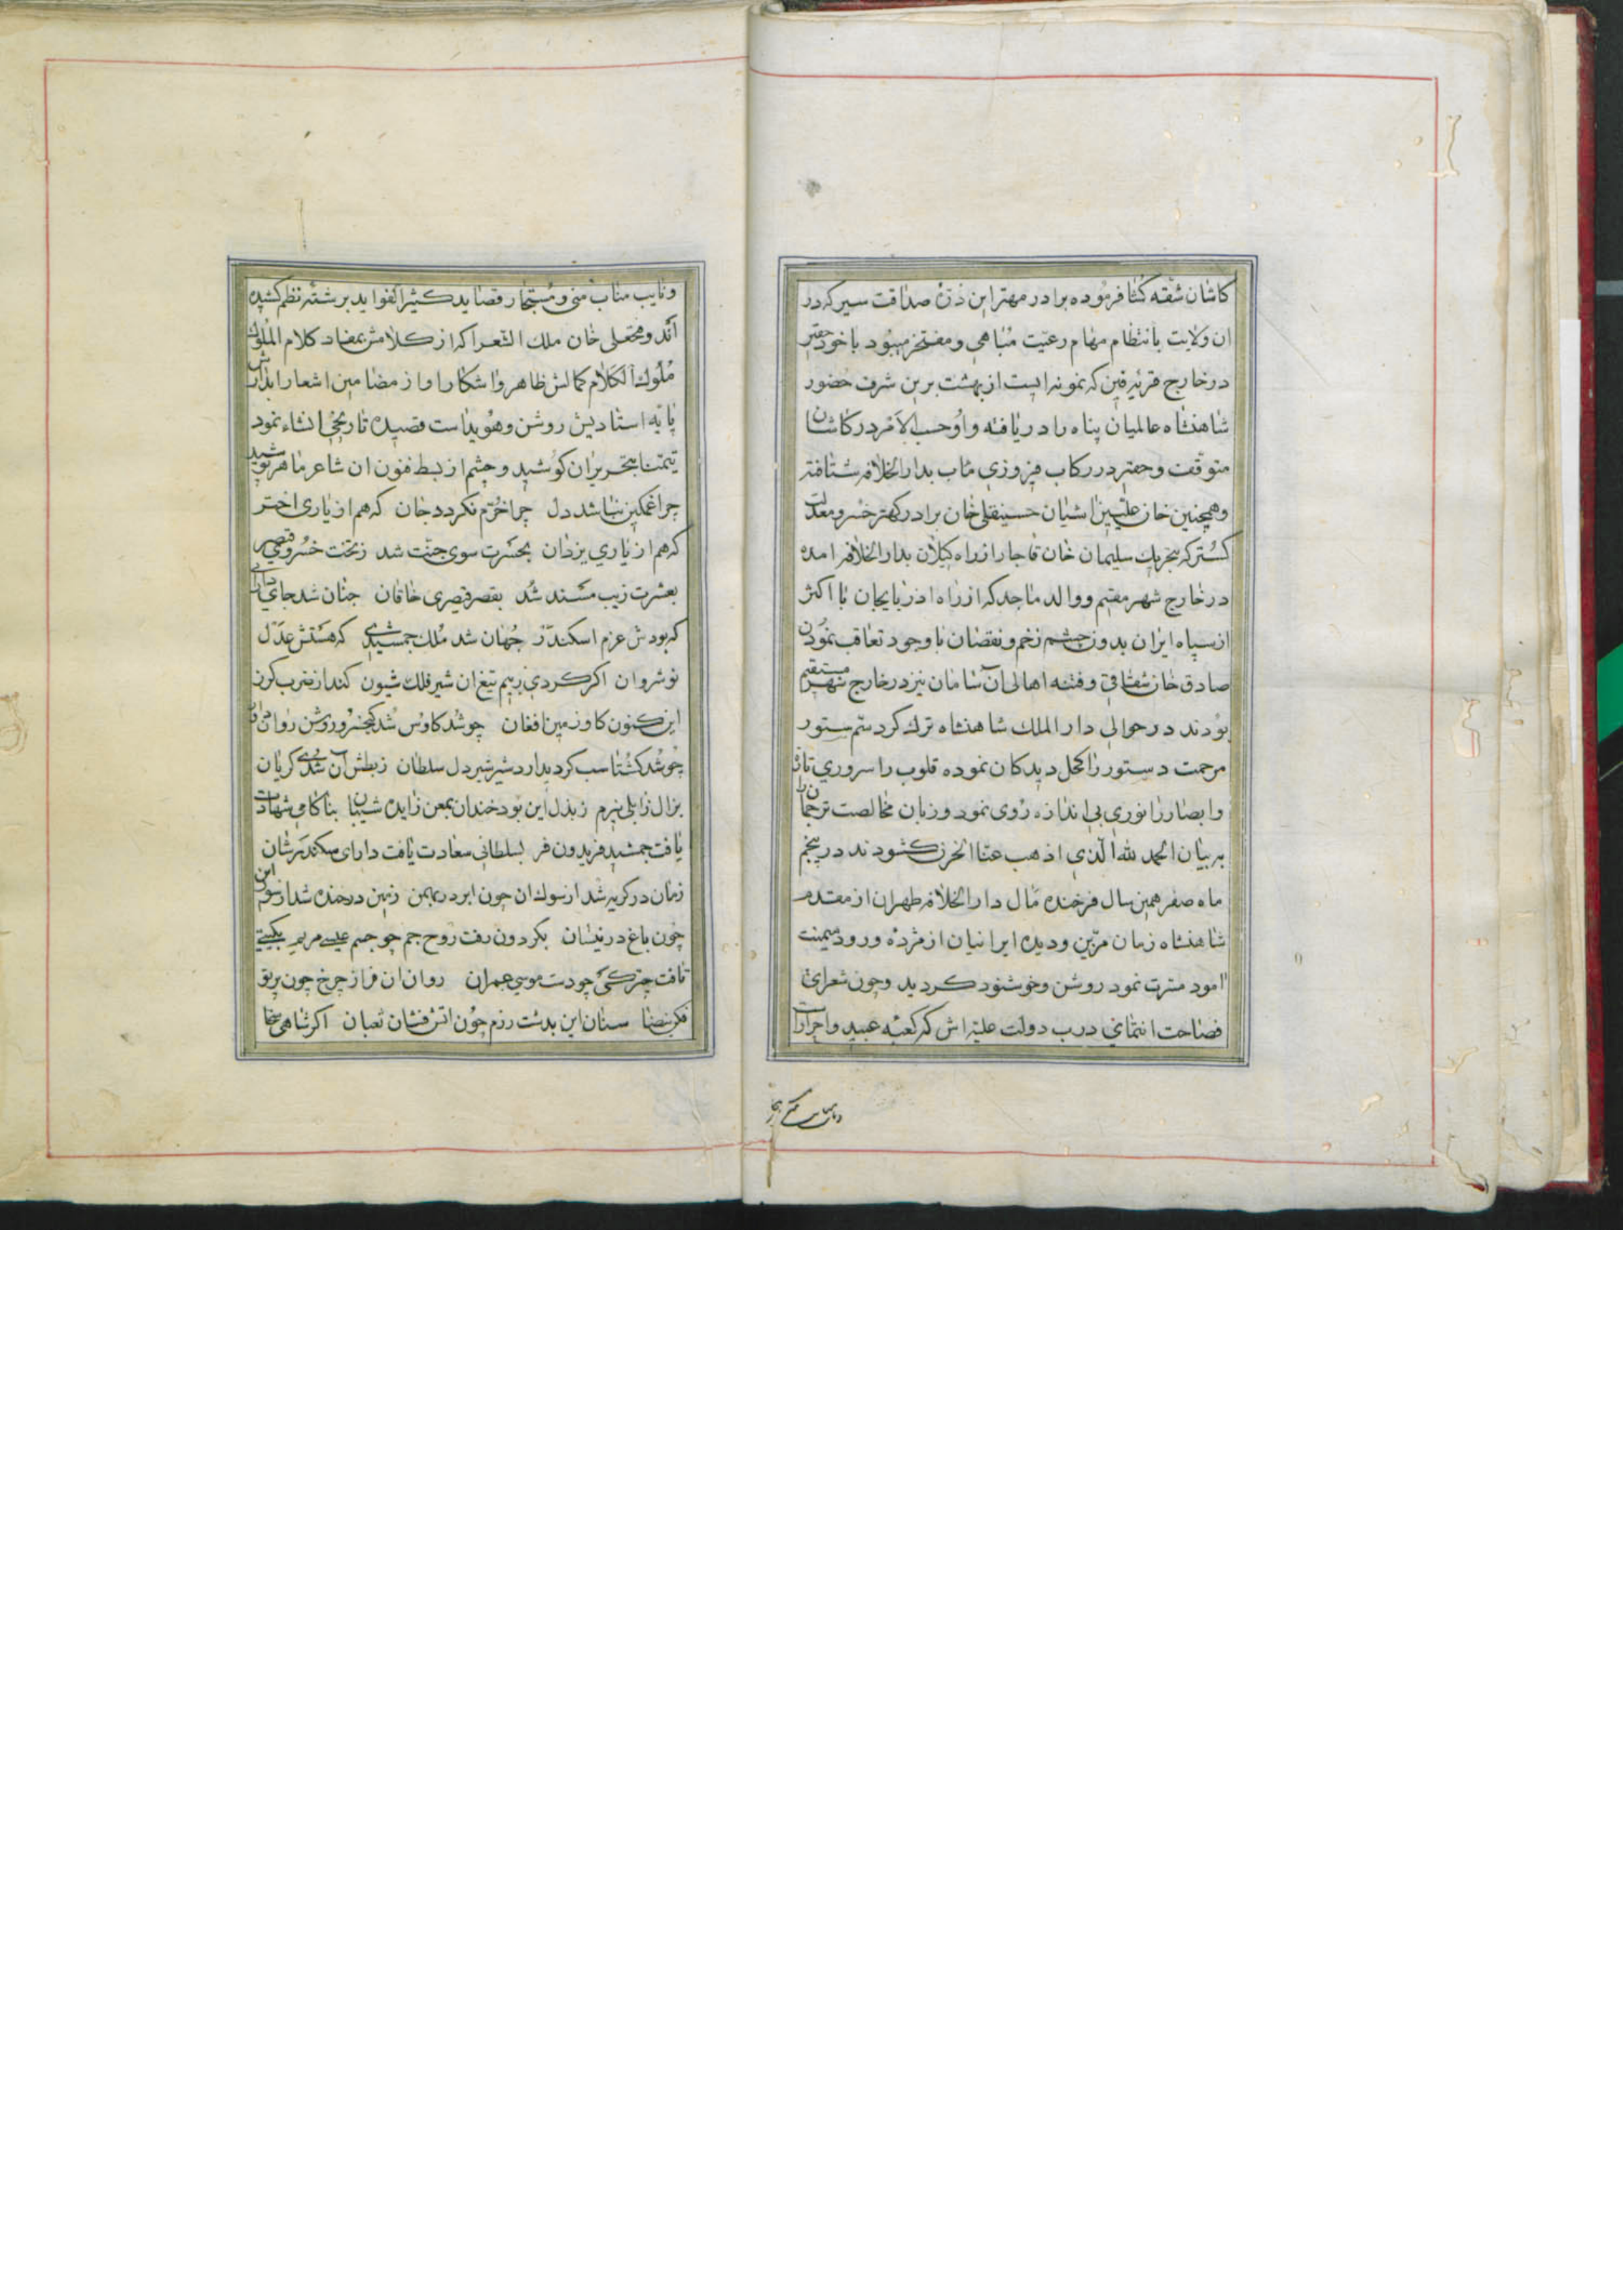 کاشان شقه کشا فرموده برادر مهتر این ذرهٔ صداقت سیر که در
ان ولایت بانتظام مهام رعیت مباهی و مفتخر میبود با خود حقیر
در خارج قریه فین که نمونه ایست از بهشت برین شرف حضور
شاهنشاه عالمیان پناه را دریافته و او حسب الامر در کاشان
متوقف و حقیر در رکاب فیروزی ماب بدار الخلافه شتافته
و همچنین خان علیین اشیان حسینقلی خان برادر کهتر خسرو معدلت
کستر که بتحریک سلیمان خان قاجار از راه کیلان بدار الخلافه امده
در خارج شهر مقیم و والد ماجد که از راه اذربایجان با اکثر
از سپاه ایران بدون چشم زخم و نقصان با وجود تعاقب نمودن
صادق خان شقاقی و فتنه اهالی آن سامان نیز در خارج شهر مستقیم
بودند در حوالی دار الملک شاهنشاه ترک کرد سم ستور
مرحمت دستور را کحل دیدکان نموده قلوب را سروری تازه
و ابصار را نوری بی اندازه روی نمود و زبان مخالصت ترجمان را
به بیان الحمد لله الذی اذهب عنا الحزن کشودند در پنجم
ماه صفر همین سال فرخنده مال دار الخلافه طهران از مقدم
شاهنشاه زمان مزین و دیده ایرانیان از مژده ورود میمنت
امود مسرت نمود روشن و خوشنود کردید و چون شعرای
فصاحت انتمای درب دولت علیه اش که کعبه عبید و احرار است
و نایب مناب منی و مستجار قصاید کثیر الفواید برشته نظم کشیده
اند و فتحعلی خان ملک الشعرا که از کلامش بمفاد کلام الملوک
ملوک الکلام کمالش ظاهر و اشکارا و از مضامین اشعار ابدارش
پایه استادیش روشن و هویداست قصیده تاریخی انشاء نمود
تیمنا بتحریر ان کوشید و چشم از بسط فنون ان شاعر ماهر پوشید
چرا غمکین نباشد دل چرا خرم نکردد جان که هم از یاری اختر
که هم از یاری یزدان بحسرت سوی جنت شد ز تخت خسروی قیصر
بعشرت زیب مسند شد بقصر قیصری خاقان جنان شد جای دارا
که بودش عزم اسکندر جهان شد ملک جمشیدی که هستش عدل
نوشروان اکر کردی ز بیم تیغ ان شیر فلک شیون کند از ضرب کرز
این کنون کاو زمین افغان چو شد کاوس شد کیخسرو روشن روان
چو شد کشتاسب کردید اردشیر شیر دل سلطان ز بطش آن شدی کریان
بزال زابلی نیرم ز بذل این بود خندان بمعن زایده شیبان بناکامی شهادت
یافت جمشید فریدون فر بسلطانی سعادت یافت دارای سکندر شان
زمان در کریه شد از سوک ان چون ابر در بهمن زمین در خنده شد از سور این
چون باغ در نیسان بکردون رفت روح جم چو جسم عیسی مریم بکیتی
تافت چتر کی چو دست موسی عمران روان ان فراز چرخ چون
سنان این بدشت رزم چون اتش فشان ثعبان اکر شاهی